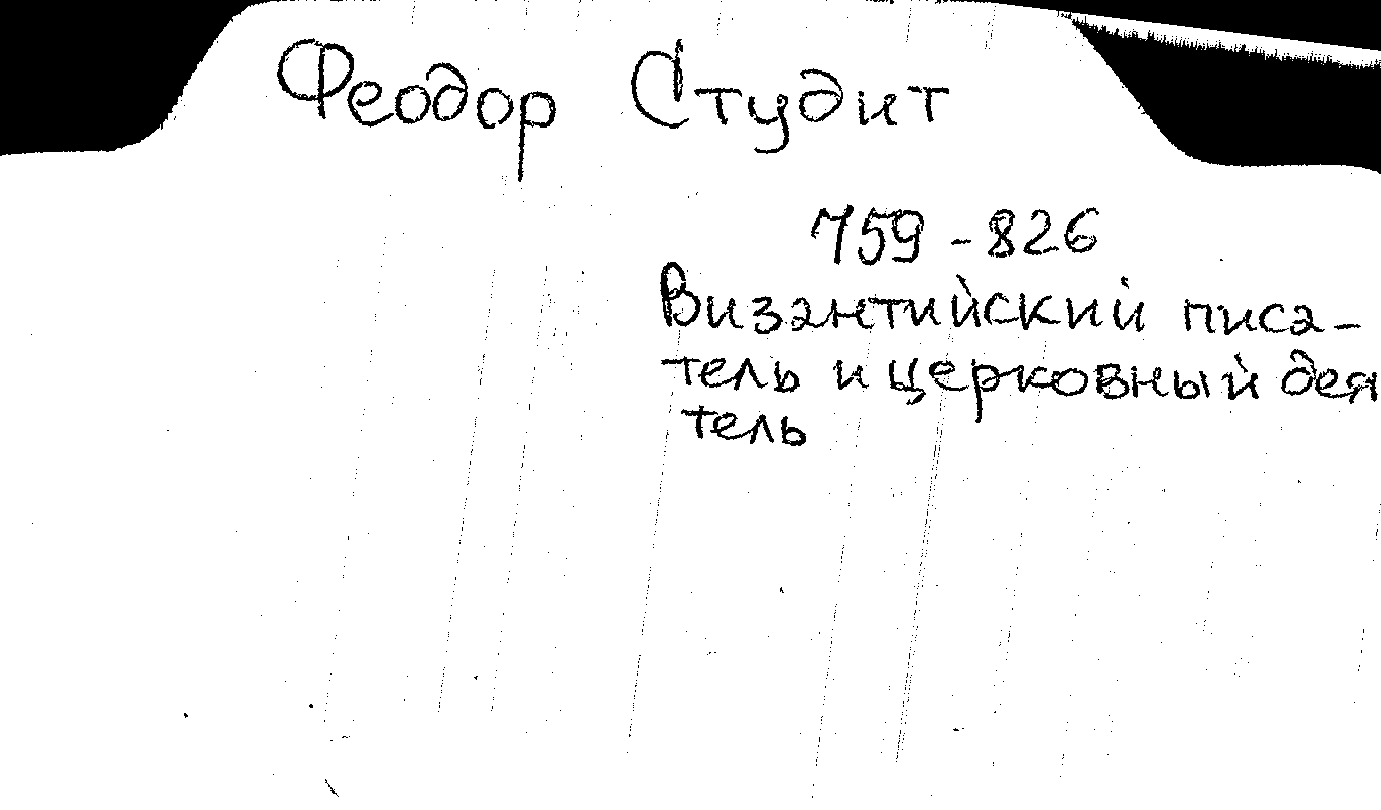 Феодор Студит
759 - 826
Византийский писа-
тель и церковный дея
тель